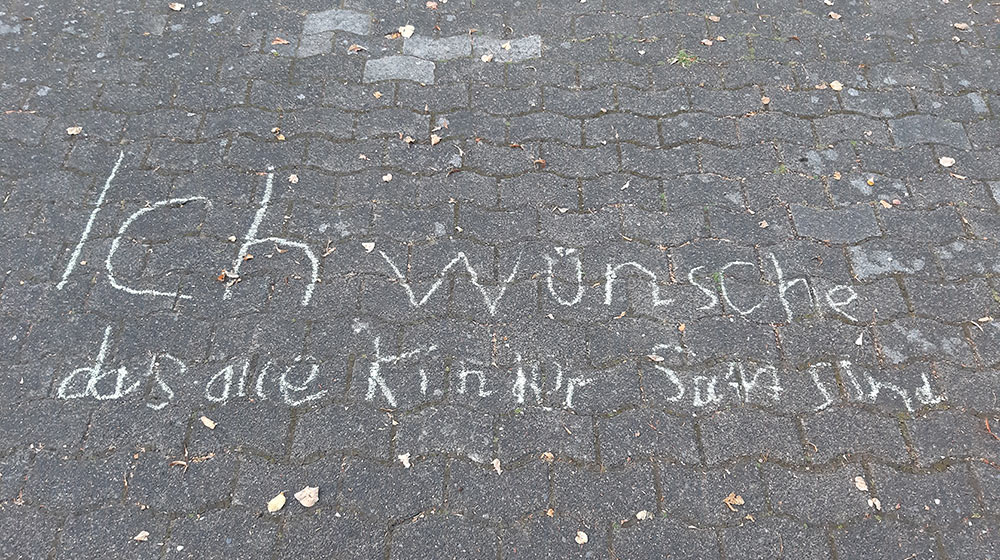 Ich wünsche
das alle Kinder satt sind